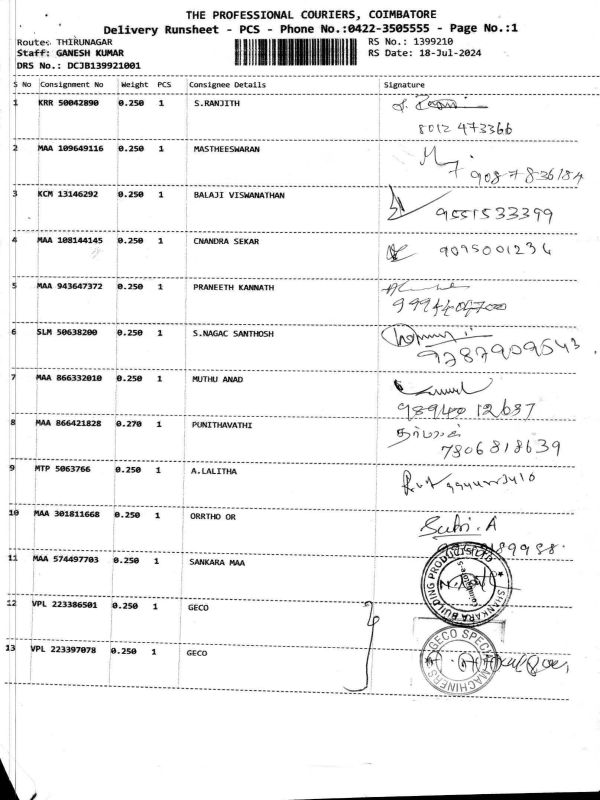 THE PROFESSIONAL COURIERS, COIMBATORE
Delivery Runsheet - PCS - Phone No.:0422-3505555 - Page No.:1
Route: THIRUNAGAR RS No.: 1399210
Staff: GANESH KUMAR RS Date: 18-Jul-2024
DRS No.: DCJB139921001
S No Consignment No Weight PCS Consignee Details Signature
1 KRR 50042890 0.250 1 S.RANJITH
8012 473366
2 MAA 109649116 0.250 1 MASTHEESWARAN
3 KCM 13146292 0.250 1 BALAJI VISWANATHAN
9551533399
4 MAA 108144145 0.250 1 CNANDRA SEKAR
9095001234
5 MAA 943647372 0.250 1 PRANEETH KANNATH
6 SLM 50638200 0.250 1 S.NAGAC SANTHOSH
9787909543
7 MAA 866332010 0.250 1 MUTHU ANAD
98940 12637
8 MAA 866421828 0.270 1 PUNITHAVATHI
7806818639
9 MTP 5063766 0.250 1 A.LALITHA
10 MAA 301811668 0.250 1 ORRTHO OR
11 MAA 574497703 0.250 1 SANKARA MAA
SHANKARA BUILDING PRODUCTS LTD
12 VPL 223386501 0.250 1 GECO
13 VPL 223397078 0.250 1 GECO
GECO SPECIAL MACHINERS